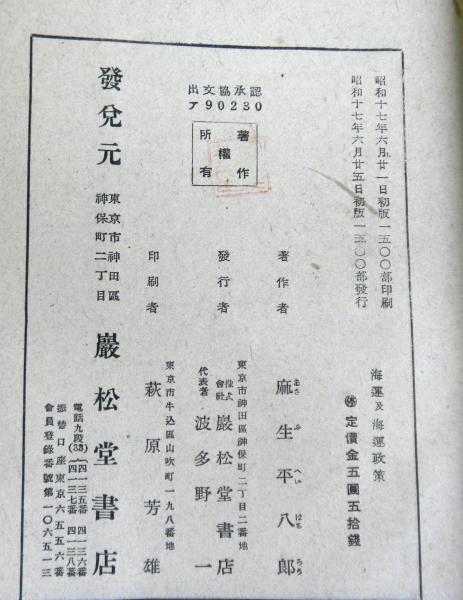 昭和十七年六月廿一日初版一五〇〇部印刷
昭和十七年六月廿五日初版一五〇〇部發行
海運及海運政策
㊞定價金五圓五拾錢
認承協文出
ア90230
著作權所有
著作者 麻生平八郎
あさ ふ へい はち ろう
東京市神田區神保町二丁目二番地
發行者 株式會社 巖松堂書店
代表者 波多野一
東京市牛込區山吹町一九八番地
印刷者 萩原芳雄
發兌元 東京市神田區神保町二丁目 巖松堂書店
電話九段(33) 四一三五番 四一三六番
四一三七番 四一三八番
振替口座東京六五五六番
會員登錄番號第一〇六五一三